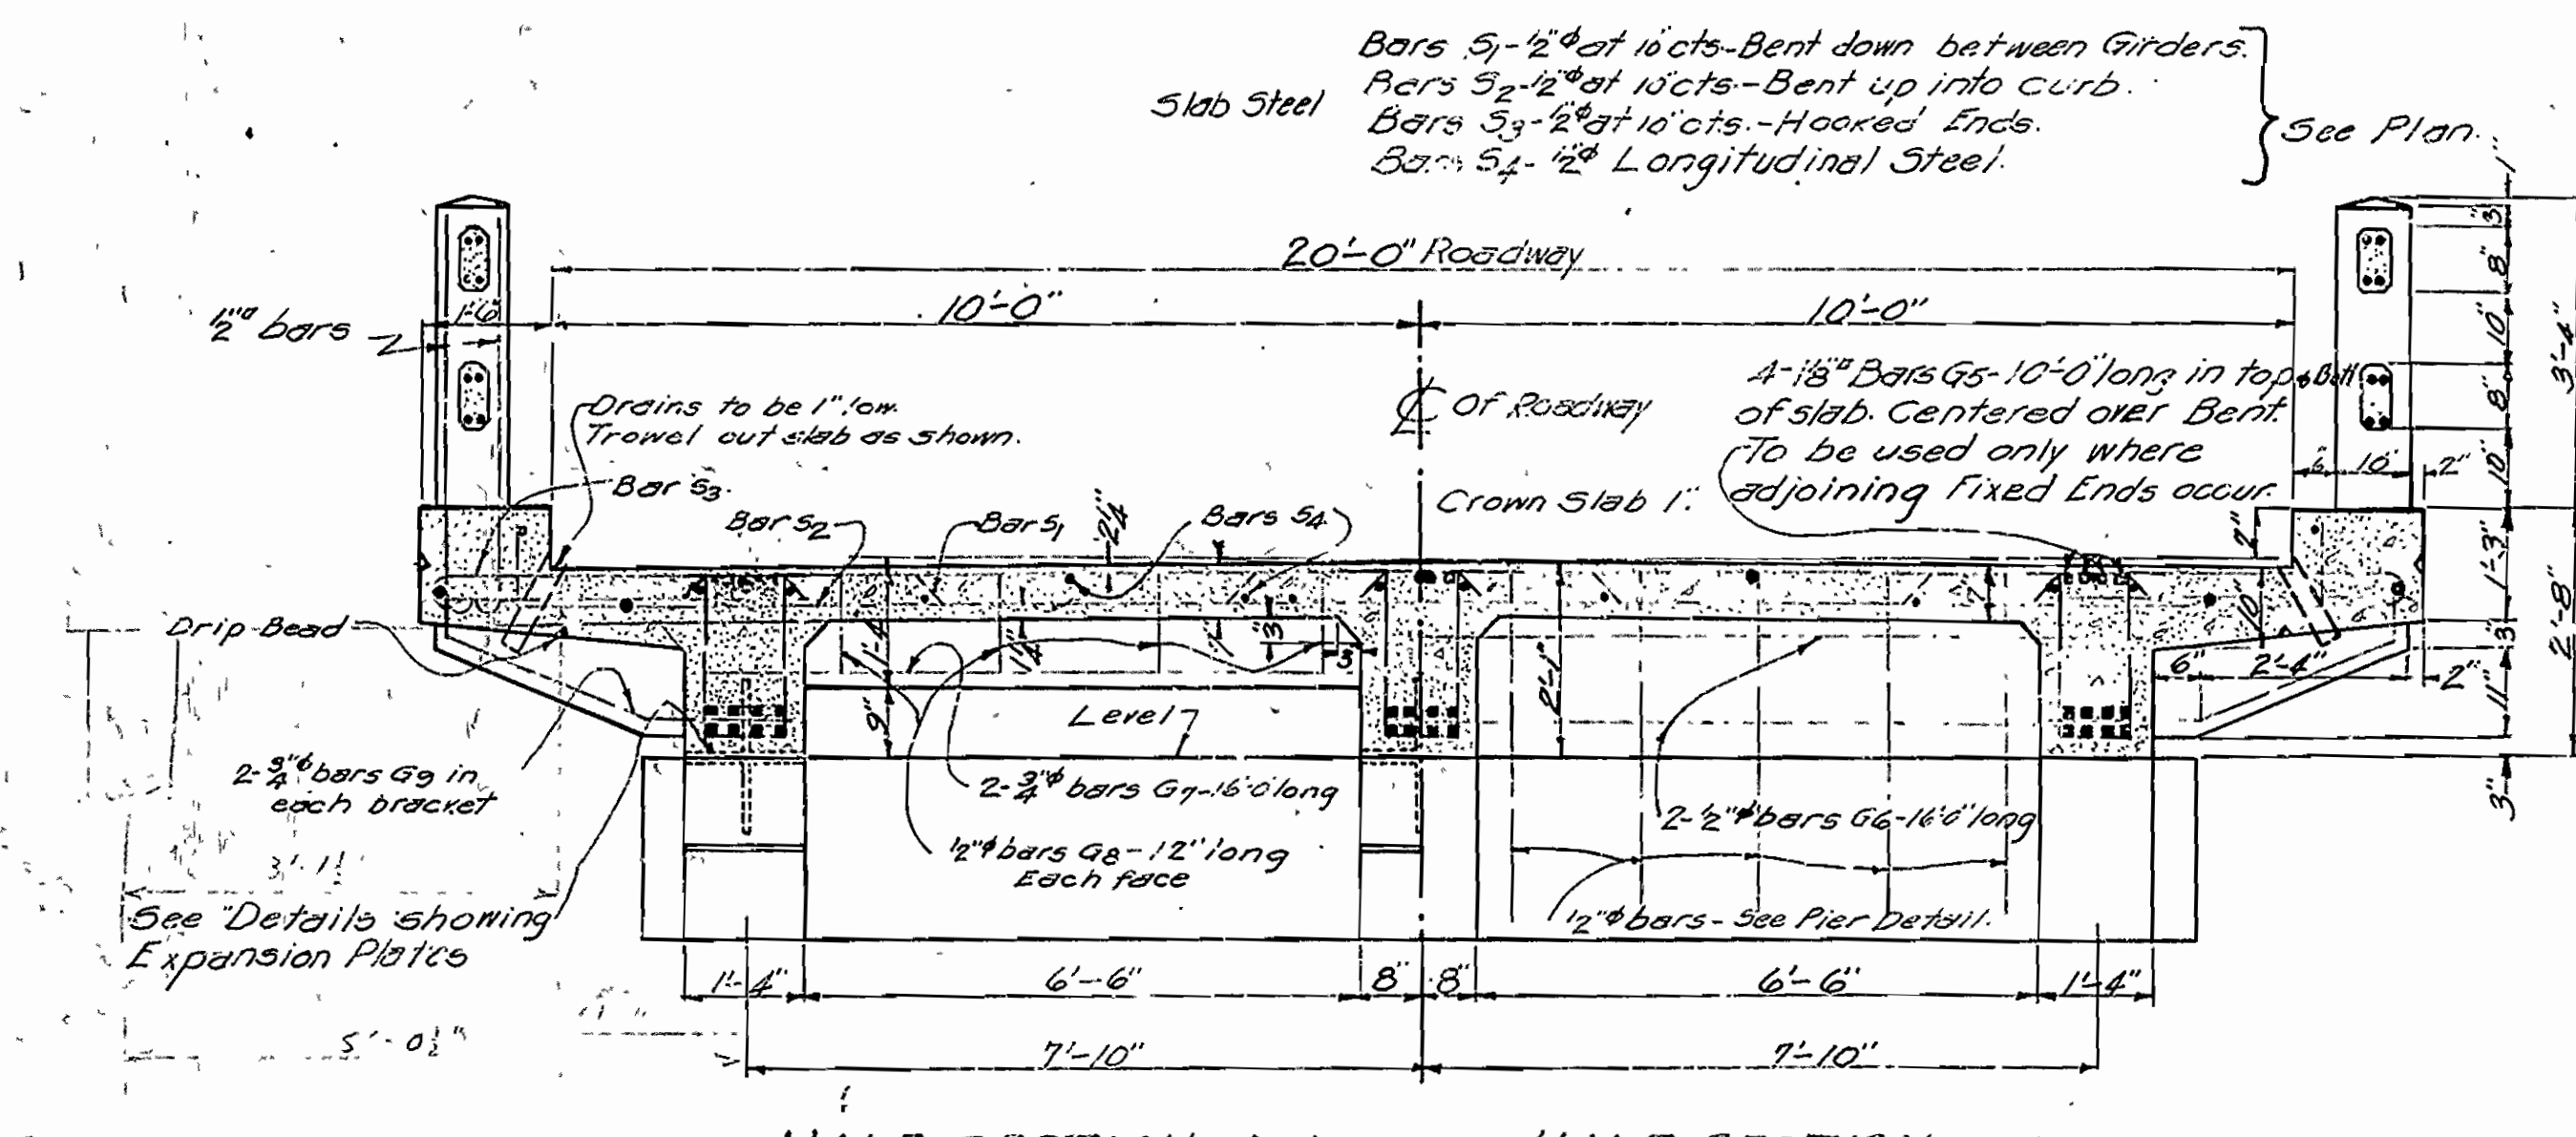 Bars S1-1/2"ϕ at 10"cts-Bent down between Girders.
Bars S2-1/2"ϕ at 10"cts.-Bent up into curb.
Slab Steel
Bars S3-1/2"ϕ at 10"cts.-Hooked Ends.
Bars S4-1/2"ϕ Longitudinal Steel.
See Plan.
20'-0" Roadway
1'-6"
10'-0"
10'-0"
1/2"□ bars
Drains to be 1" low.
Trowel out slab as shown.
℄ Of Roadway
4-1 1/8"□ Bars G5-10'-0" long in top & Bott
of slab. Centered over Bent.
To be used only where
adjoining Fixed Ends occur.
Bar S3.
Bar S2
Bars S1
2 1/4"
Bars S4
Crown Slab 1".
1"
3"
8"
10"
8"
10"
3'-4"
6"
10"
2"
2"
1'-3"
3"
11"
3"
2'-8"
Drip Bead
1'-4"
9"
1 1/4"
7"
3"
3
2'-1"
7"
10"
6"
2'-4"
2"
Level
2-3/4"ϕ bars G9 in
each bracket
2-3/4"ϕ bars G7-16'-0 long
1/2"ϕ bars G8-12" long
Each face
2-1/2"ϕ bars G6-16'-0" long
1/2"ϕ bars-See Pier Detail.
3'-1 1/2
See "Details showing
Expansion Plates
1'-4"
6'-6"
8"
8"
6'-6"
1'-4"
5'-0 1/2"
7'-10"
7'-10"